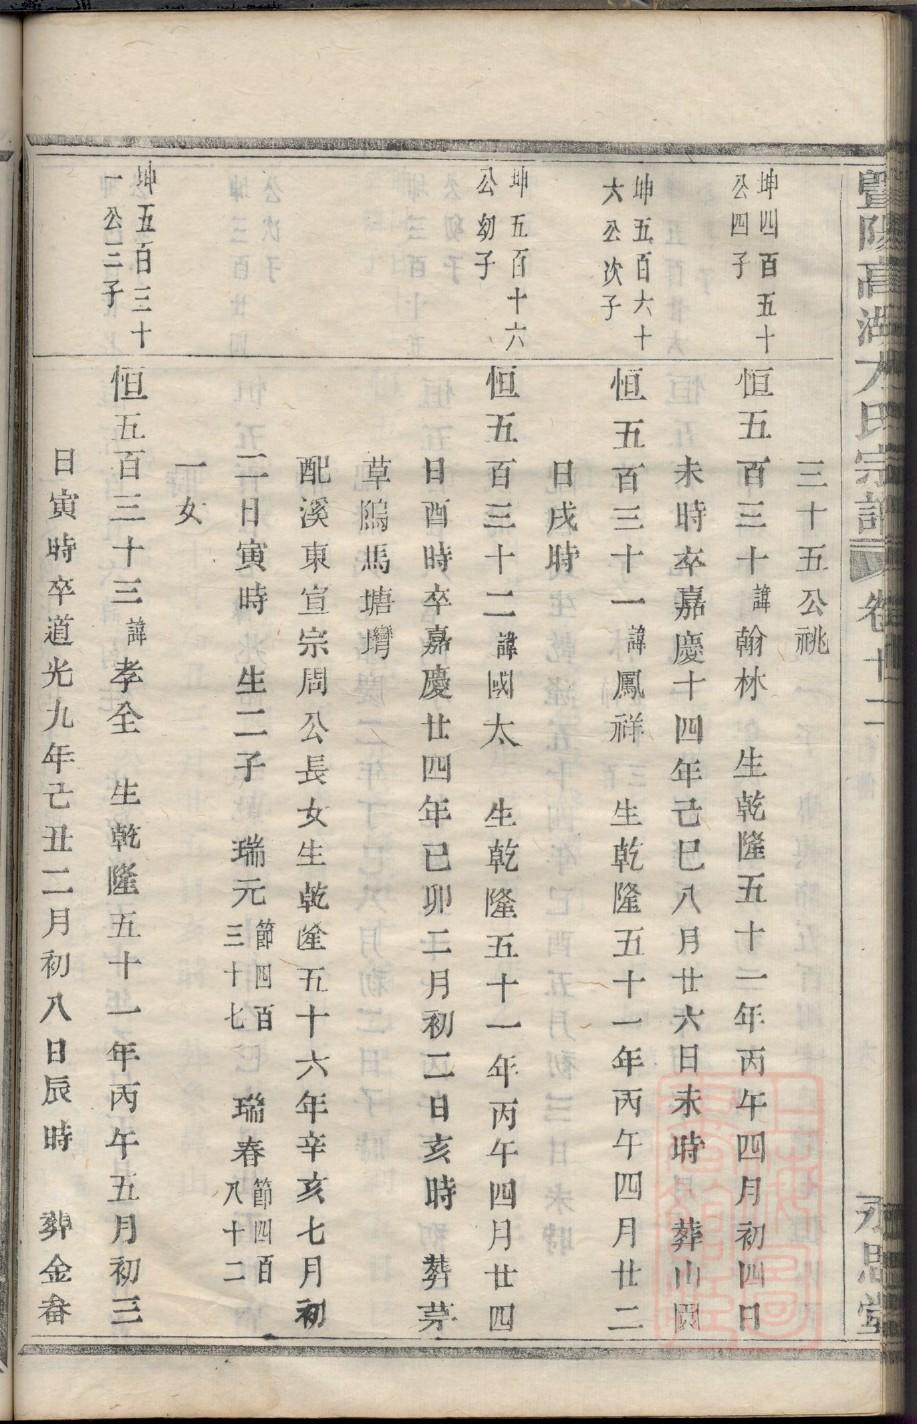 暨陽高湖方氏宗譜 卷十二 永思堂
三十五公祧
坤四百五十
公四子
恒五百三十諱翰林 生乾隆五十一年丙午四月初四日
未時卒嘉慶十四年己巳八月廿六日未時 葬山園
坤五百六十
六公次子
恒五百三十一諱鳳祥 生乾隆五十一年丙午四月廿二
日戌時
坤五百十六
公幼子
恒五百三十二諱國太 生乾隆五十一年丙午四月廿四
日酉時卒嘉慶廿四年已卯二月初二日亥時 葬茅
草隖馬塘塆
配溪東宣宗周公長女生乾隆五十六年辛亥七月初
二日寅時 生二子 瑞元節四百三十七 瑞春節四百八十二
一女
坤五百三十
一公三子
恒五百三十三諱孝全 生乾隆五十一年丙午五月初三
日寅時卒道光九年己丑二月初八日辰時 葬金畚